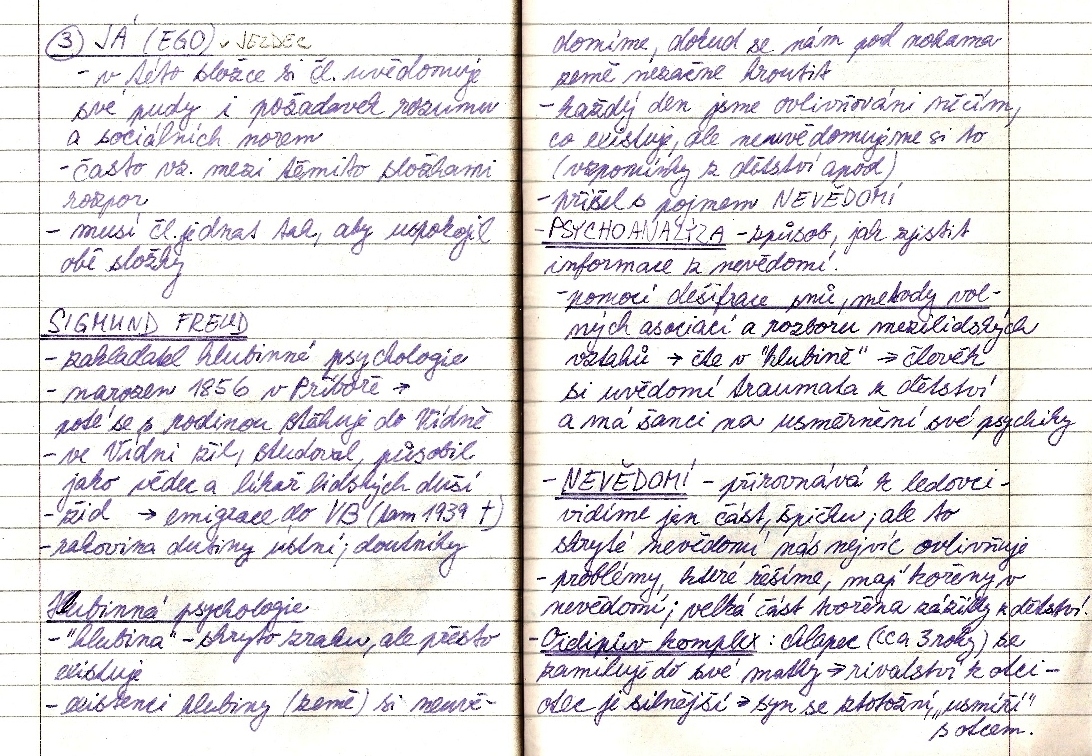 ③ JÁ (EGO) - JEZDEC
- v této složce si čl. uvědomuje
své pudy i požadavek rozumu
a sociálních norem
- často vz. mezi těmito složkami
rozpor
- musí čl. jednat tak, aby uspokojil
obě složky
SIGMUND FREUD
- zakladatel hlubinné psychologie
- narozen 1856 v Příboře →
poté se s rodinou stěhuje do Vídně
- ve Vídni žil, studoval, působil
jako vědec a lékař lidských duší
- žid → emigrace do VB (tam 1939 †)
- rakovina dutiny ústní; doutníky
Hlubinná psychologie
- "hlubina" - skryto zraku, ale přesto
existuje
- existenci hlubiny (země) si neuvě-
domíme, dokud se nám pod nohama
země nezačne kroutit
- každý den jsme ovlivňováni něčím,
co existuje, ale neuvědomujeme si to
(vzpomínky z dětství apod)
- přišel s pojmem NEVĚDOMÍ
- PSYCHOANALÝZA - způsob, jak zjistit
informace z nevědomí.
- pomocí dešifrace snů, metody vol-
ných asociací a rozboru mezilidských
vztahů → čte v "hlubině" → člověk
si uvědomí traumata z dětství
a má šanci na usměrnění své psychiky
- NEVĚDOMÍ - přirovnává k ledovci -
vidíme jen část, špičku; ale to
skryté nevědomí nás nejvíc ovlivňuje
- problémy, které řešíme, mají kořeny v
nevědomí; velká část tvořena zážitky z dětství.
- Oidipův komplex: chlapec (cca 3 roky) se
zamiluje do své matky → rivalství k otci -
otec je silnější → syn se ztotožní, „usmíří"
s otcem.